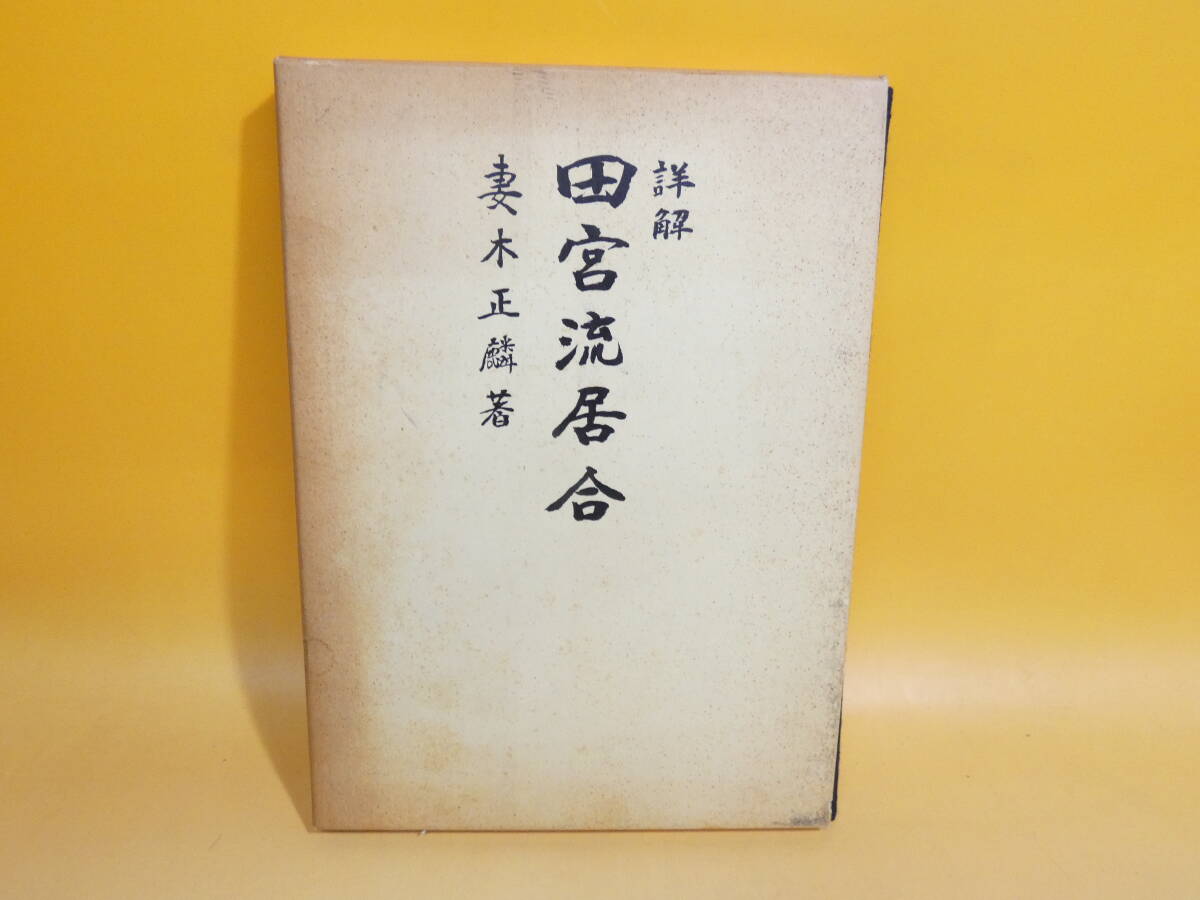 詳解
田宮流居合
妻木正麟著